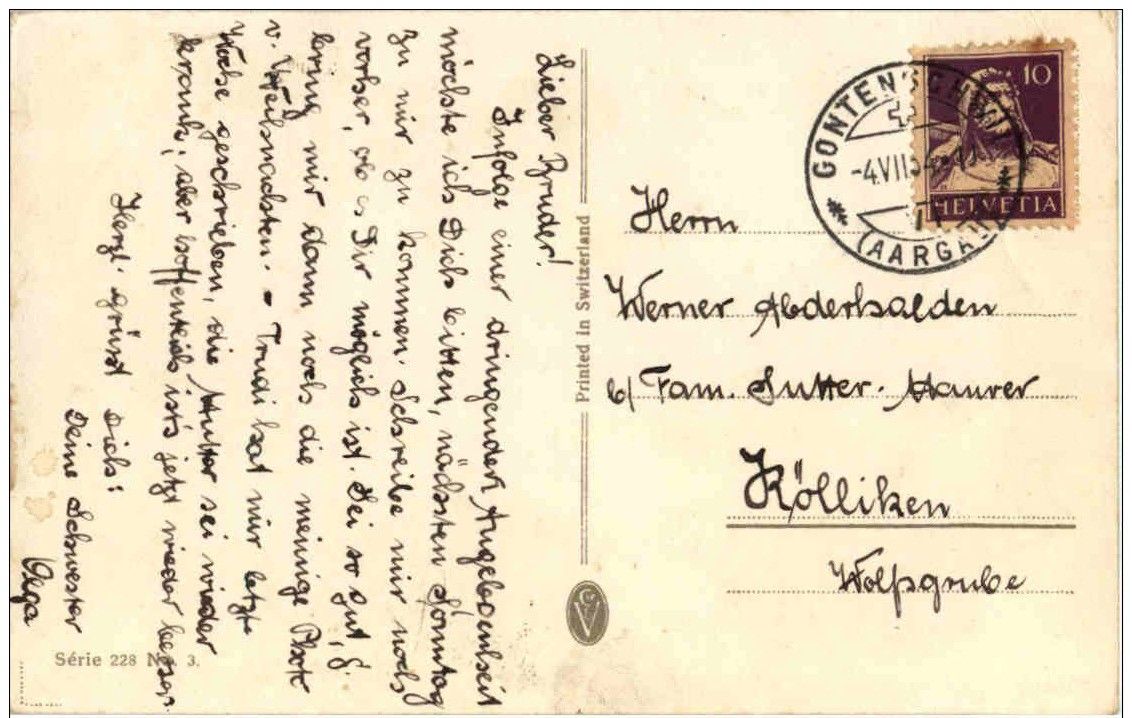 Lieber Bruder!
Infolge einer dringenden Angelegenheit
möchte ich Dich bitten, nächsten Sonntag
zu mir zu kommen. Schreibe mir noch
vorher, ob es Dir möglich ist. Sei so gut, &
bring mir dann noch die meinige Photo
v. Weihnachten. - Trudi hat mir letzte
Woche geschrieben, die Mutter sei wieder
krank; aber hoffentlich ist's jetzt wieder besser.
Herzl. grüsst Dich:
Deine Schwester
Olga
Série 228 No. 3.
Printed in Switzerland
GONTENSCHWIL
-4.VII.34
(AARGAU)
10
HELVETIA
Herrn
Werner Abderhalden
b/ Fam. Sutter-Maurer
Kölliken
Wolfsgrube